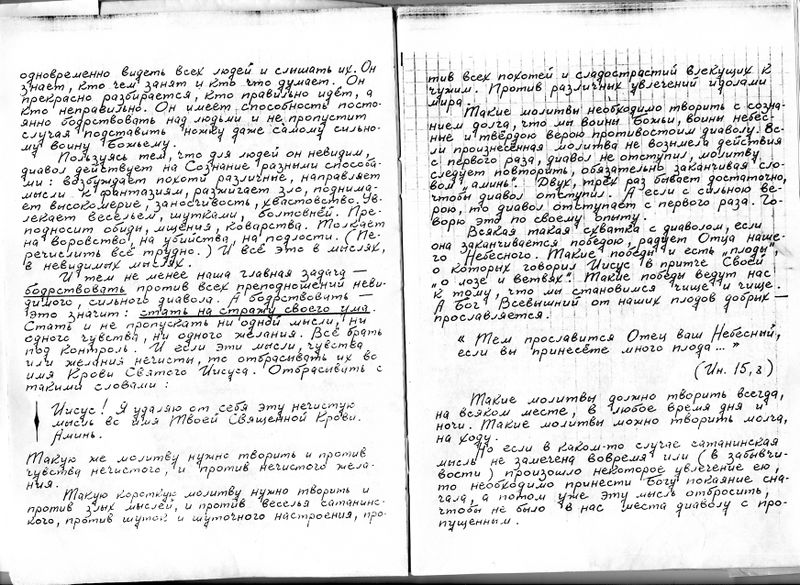 одновременно видеть всех людей и слышать их. Он
знает, кто чем занят и кто что думает. Он
прекрасно разбирается, кто правильно идёт, а
кто неправильно. Он имеет способность посто-
янно бодрствовать над людьми и не пропустит
случая подставить ножку даже самому сильно-
му воину Божьему.
Пользуясь тем, что для людей он невидим,
диавол действует на Сознание разными способа-
ми: возбуждает похоти различные, направляет
мысль к фантазиям, разжигает зло, поднима-
ет высокомерие, заносчивость, хвастовство. Ув-
лекает весельем, шутками, болтовнёй. Пре-
подносит обиды, мщения, коварства. Толкает
на воровство, на убийства, на подлости. (Пе-
речислить всё трудно.) И всё это в мыслях,
в невидимых мыслях.
И тем не менее наша главная задача —
бодрствовать против всех преподношений неви-
димого, сильного диавола. А бодрствовать —
это значит: стать на стражу своего ума.
Стать и не пропускать ни одной мысли, ни
одного чувства, ни одного желания. Всё брать
под контроль. И если эти мысли, чувства
или желания нечисты, то отбрасывать их во
имя Крови Святого Иисуса. Отбрасывать с
такими словами:
Иисус! Я удаляю от себя эту нечистую
мысль во имя Твоей Священной Крови.
Аминь.
Такую же молитву нужно творить и против
чувства нечистого, и против нечистого жела-
ния.
Такую короткую молитву нужно творить и
против злых мыслей, и против веселья сатанинс-
кого, против шуток и шуточного настроения, про-
тив всех похотей и сладострастий влекущих к
чужим. Против различных увлечений идолами
мира.
Такие молитвы необходимо творить с созна-
нием долга, что мы воины Божьи, воины небес-
ные и твёрдою верою противостоим диаволу. Ес-
ли произнесённая молитва не возымела действия
с первого раза, диавол не отступил, молитву
следует повторить, обязательно заканчивая сло-
вом „аминь". Двух, трёх раз бывает достаточно,
чтобы диавол отступил. А если с сильною ве-
рою, то диавол отступает с первого раза. Го-
ворю это по своему опыту.
Всякая такая схватка с диаволом, если
она заканчивается победою, радует Отца наше-
го Небесного. Такие победы и есть „плоды",
о которых говорил Иисус в притче Своей
„о лозе и ветвях". Такие победы ведут нас
к тому, что мы становимся чище и чище.
А Бог Всевышний от наших плодов добрых —
прославляется.
« Тем прославится Отец ваш Небесный,
если вы принесёте много плода...»
(Ин. 15,8)
Такие молитвы должно творить всегда,
на всяком месте, в любое время дня и
ночи. Такие молитвы можно творить молча,
на ходу.
Но если в каком-то случае сатанинская
мысль не замечена вовремя или (в забывчи-
вости) произошло некоторое увлечение ею,
то необходимо принести Богу покаяние сна-
чала, а потом уже эту мысль отбросить,
чтобы не было в нас места диаволу с про-
пущенным.